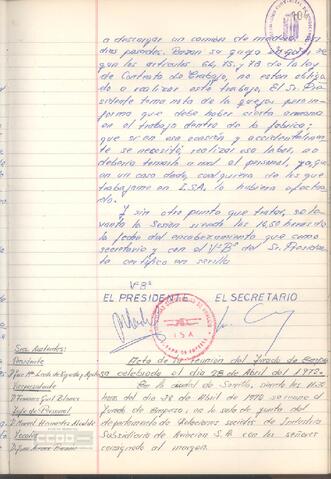 a descargar un camión de madera
dias pasados. Basan su queja en que se
gun los articulos 64, 75, y 78 de la ley
de Contrato de Trabajo, no estan obliga
do a realizar este trabajo. El Sr. Pre
sidente toma nota de la queja, pero in
forma que debe haber cierta armonia
en el trabajo dentro de la fabrica;
que si en una ocasión y accidentalmen
te se necesitó realizar esa labor, no
deberia tomarlo a mal el personal, ya que
en un caso dado, cualquiera de los que
trabajamos en I.S.A. lo hubiera efectua
do.
Y sin otro punto que tratar, se le
vanta la Sesión siendo las 16,50 horas de
la fecha del encabezamiento que como
secretario y con el Vº Bº del Sr. Presiden
te certifico en Sevilla
Vº Bº
EL PRESIDENTE EL SECRETARIO
I S A
Sres. Asistentes:
Presidente
Vicepresidente
D. Francisco Gil Blanco
Jefe de Personal
D. Manuel Hernandez
Vocales
Acta de la reunión del Jurado de Empre
sa celebrada el dia 28 de Abril de 1972.-
En la ciudad de Sevilla, siendo las
horas del dia 28 de Abril de 1972 se reune el
Jurado de Empresa, en la sala de juntas del
departamento de Relaciones sociales de Industria
Subsidiaria de Aviacion S.A. con los señores
consignado al margen.
CCOO